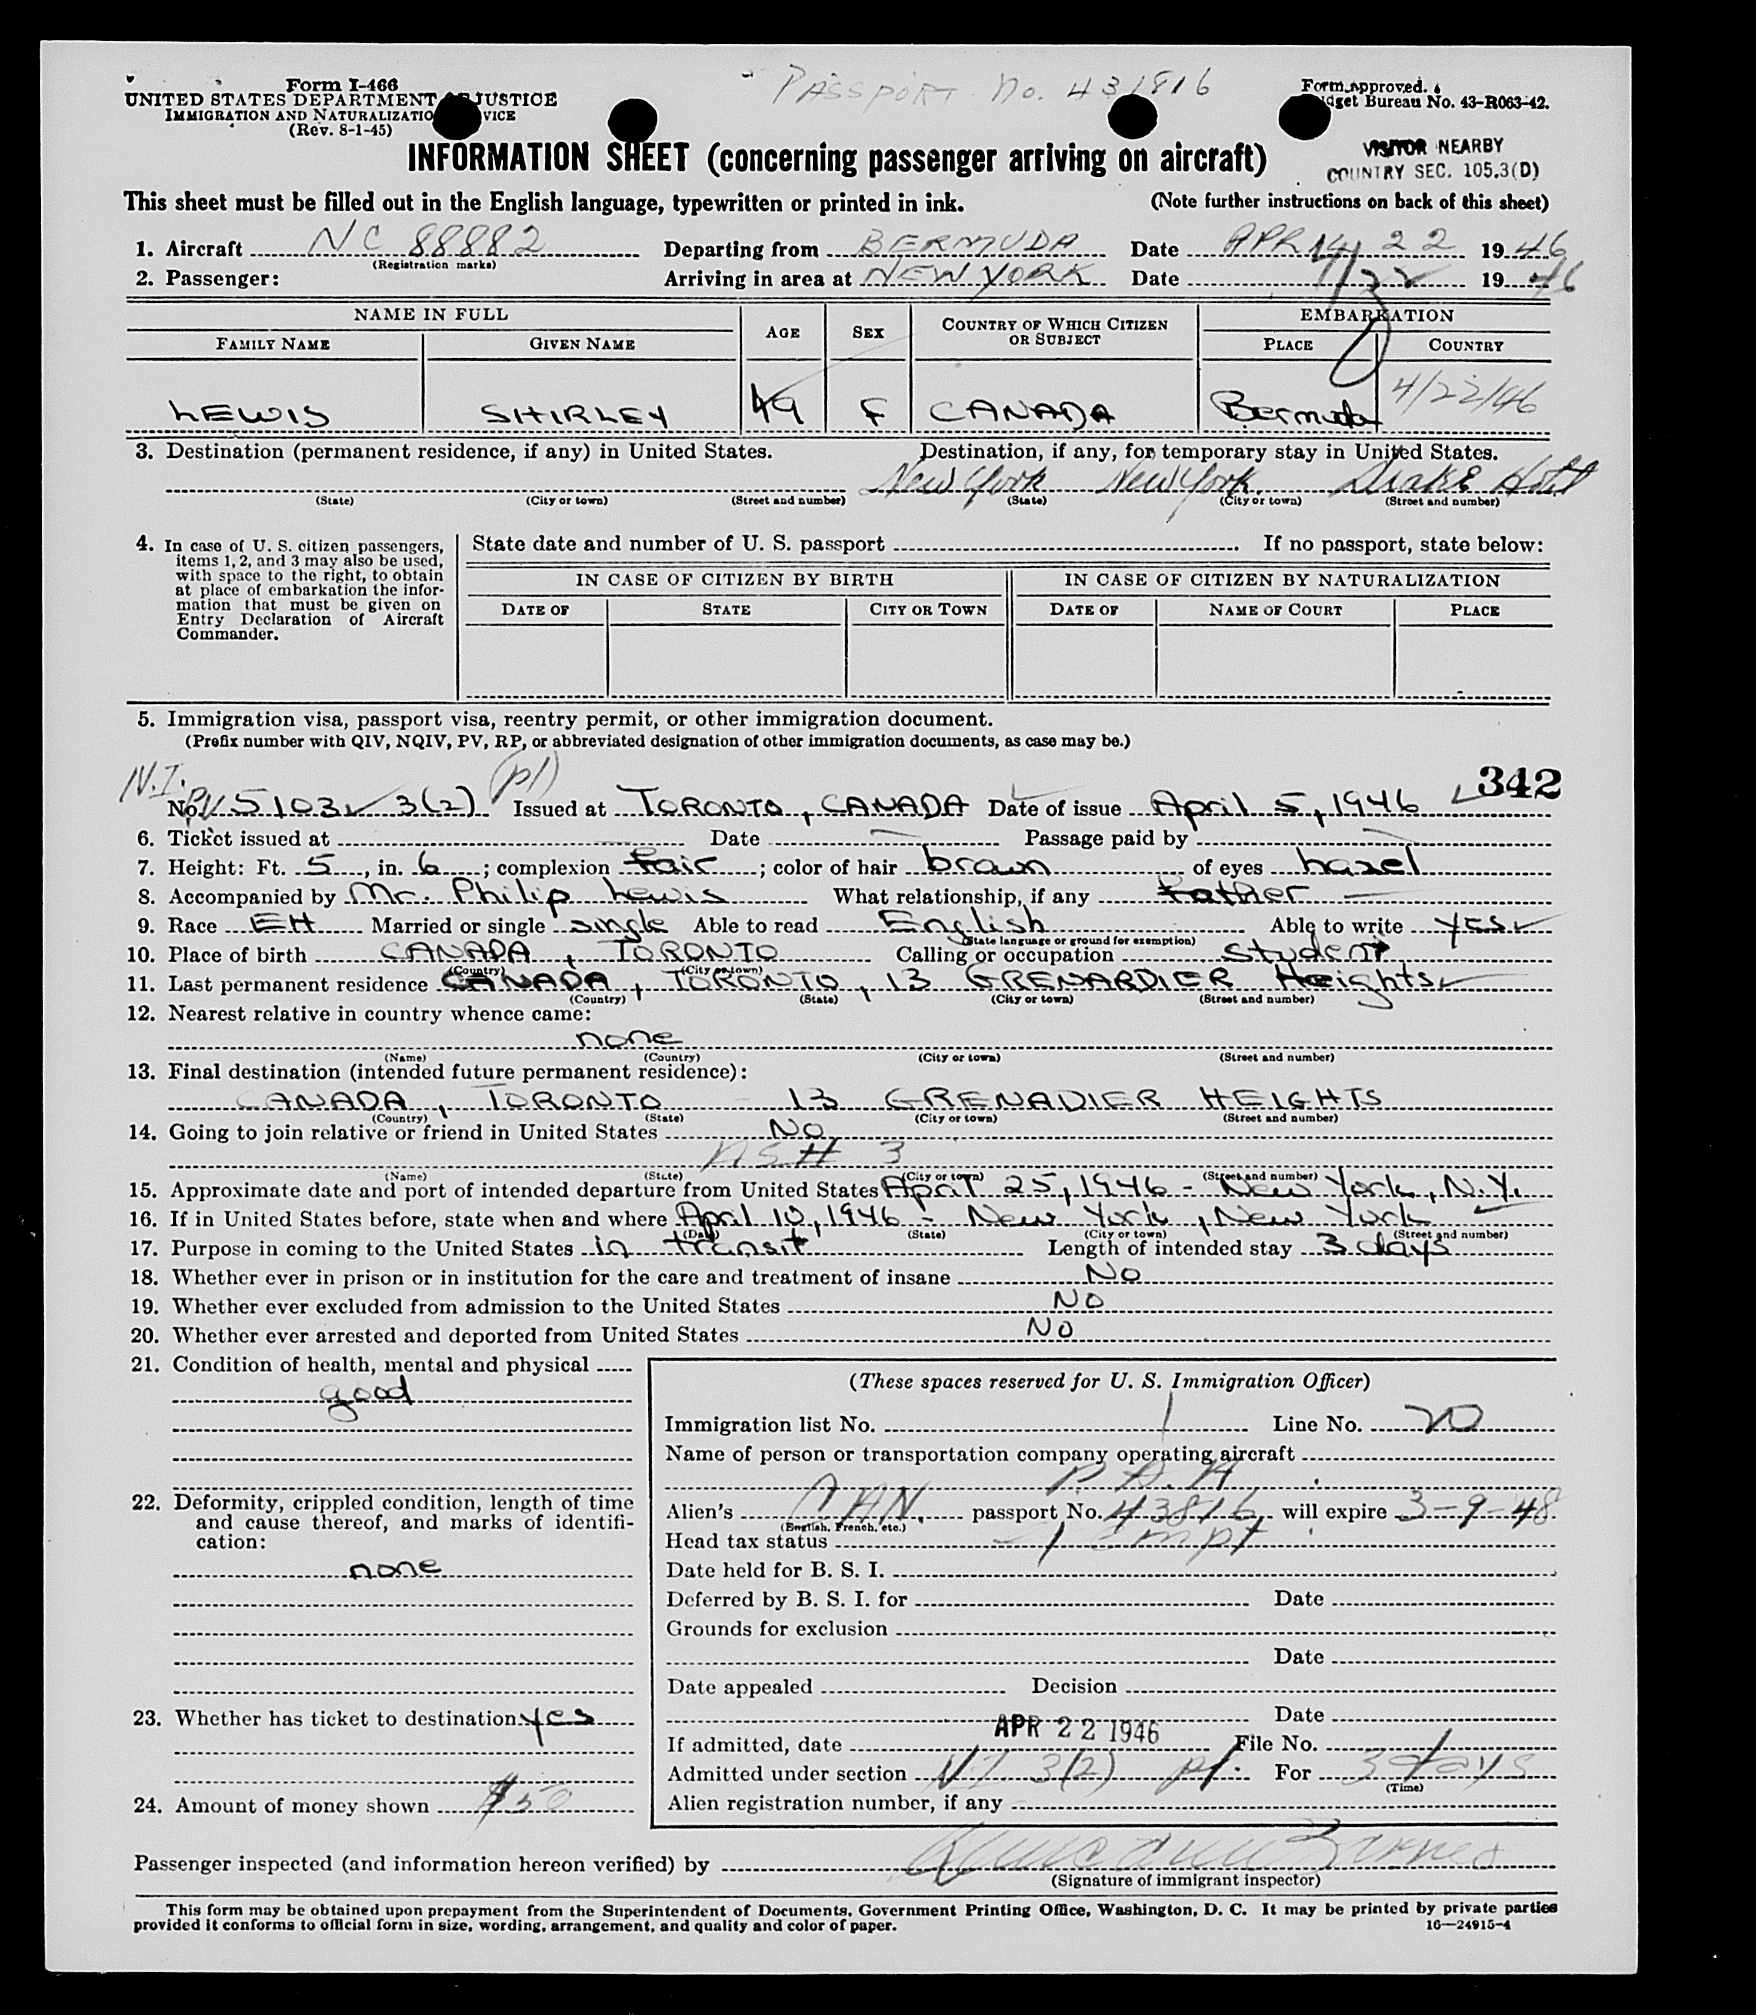 Form I-466
UNITED STATES DEPARTMENT JUSTICE
IMMIGRATION AND NATURALIZATIO VICE
(Rev. 8-1-45)
PASSPORT No. 431816
Form approved.
dget Bureau No. 43-R063-42.
VISITOR NEARBY
COUNTRY SEC. 105.3(D)
INFORMATION SHEET (concerning passenger arriving on aircraft)
This sheet must be filled out in the English language, typewritten or printed in ink. (Note further instructions on back of this sheet)
1. Aircraft NC 88882 Departing from BERMUDA Date APRIL 22 1946
(Registration marks)
2. Passenger: Arriving in area at NEW YORK Date 4/22 1946
NAME IN FULL AGE SEX COUNTRY OF WHICH CITIZEN OR SUBJECT EMBARKATION
FAMILY NAME GIVEN NAME PLACE COUNTRY
LEWIS SHIRLEY 19 F CANADA Bermuda 4/22/46
3. Destination (permanent residence, if any) in United States. Destination, if any, for temporary stay in United States.
New York New York Drake Hotel
(State) (City or town) (Street and number) (State) (City or town) (Street and number)
4. In case of U. S. citizen passengers, items 1, 2, and 3 may also be used, with space to the right, to obtain at place of embarkation the information that must be given on Entry Declaration of Aircraft Commander.
State date and number of U. S. passport . If no passport, state below:
IN CASE OF CITIZEN BY BIRTH IN CASE OF CITIZEN BY NATURALIZATION
DATE OF STATE CITY OR TOWN DATE OF NAME OF COURT PLACE
5. Immigration visa, passport visa, reentry permit, or other immigration document.
(Prefix number with QIV, NQIV, PV, RP, or abbreviated designation of other immigration documents, as case may be.)
N.I. (pl) 342
No. PV 5103 3(2) Issued at TORONTO, CANADA Date of issue April 5, 1946
6. Ticket issued at Date Passage paid by
7. Height: Ft. 5, in. 6; complexion fair; color of hair brown of eyes hazel
8. Accompanied by Mr. Philip Lewis What relationship, if any father
9. Race EH Married or single single Able to read English Able to write yes
(State language or ground for exemption)
10. Place of birth CANADA, TORONTO Calling or occupation student
(Country) (City or town)
11. Last permanent residence CANADA, TORONTO, 13 GRENARDIER Heights
(Country) (State) (City or town) (Street and number)
12. Nearest relative in country whence came:
none
(Name) (Country) (City or town) (Street and number)
13. Final destination (intended future permanent residence):
CANADA, TORONTO 13 GRENADIER HEIGHTS
(Country) (State) (City or town) (Street and number)
14. Going to join relative or friend in United States No
(Name) (State) (City or town) (Street and number)
15. Approximate date and port of intended departure from United States April 25, 1946 - New York, N.Y.
16. If in United States before, state when and where April 10, 1946 - New York, New York
(Date) (State) (City or town) (Street and number)
17. Purpose in coming to the United States in transit Length of intended stay 3 days
18. Whether ever in prison or in institution for the care and treatment of insane No
19. Whether ever excluded from admission to the United States No
20. Whether ever arrested and deported from United States No
21. Condition of health, mental and physical
good
22. Deformity, crippled condition, length of time and cause thereof, and marks of identification:
none
23. Whether has ticket to destination yes
24. Amount of money shown $50
(These spaces reserved for U. S. Immigration Officer)
Immigration list No. 1 Line No. 20
Name of person or transportation company operating aircraft
P.A.A.
Alien's CAN. passport No. 43816 will expire 3-9-48
(English, French, etc.)
Head tax status
Date held for B. S. I.
Deferred by B. S. I. for Date
Grounds for exclusion
Date
Date appealed Decision
Date
If admitted, date APR 22 1946 File No.
Admitted under section N.I. 3(2) pl. For 3 days
(Time)
Alien registration number, if any
Passenger inspected (and information hereon verified) by
(Signature of immigrant inspector)
This form may be obtained upon prepayment from the Superintendent of Documents, Government Printing Office, Washington, D. C. It may be printed by private parties
provided it conforms to official form in size, wording, arrangement, and quality and color of paper. 16—24915-4